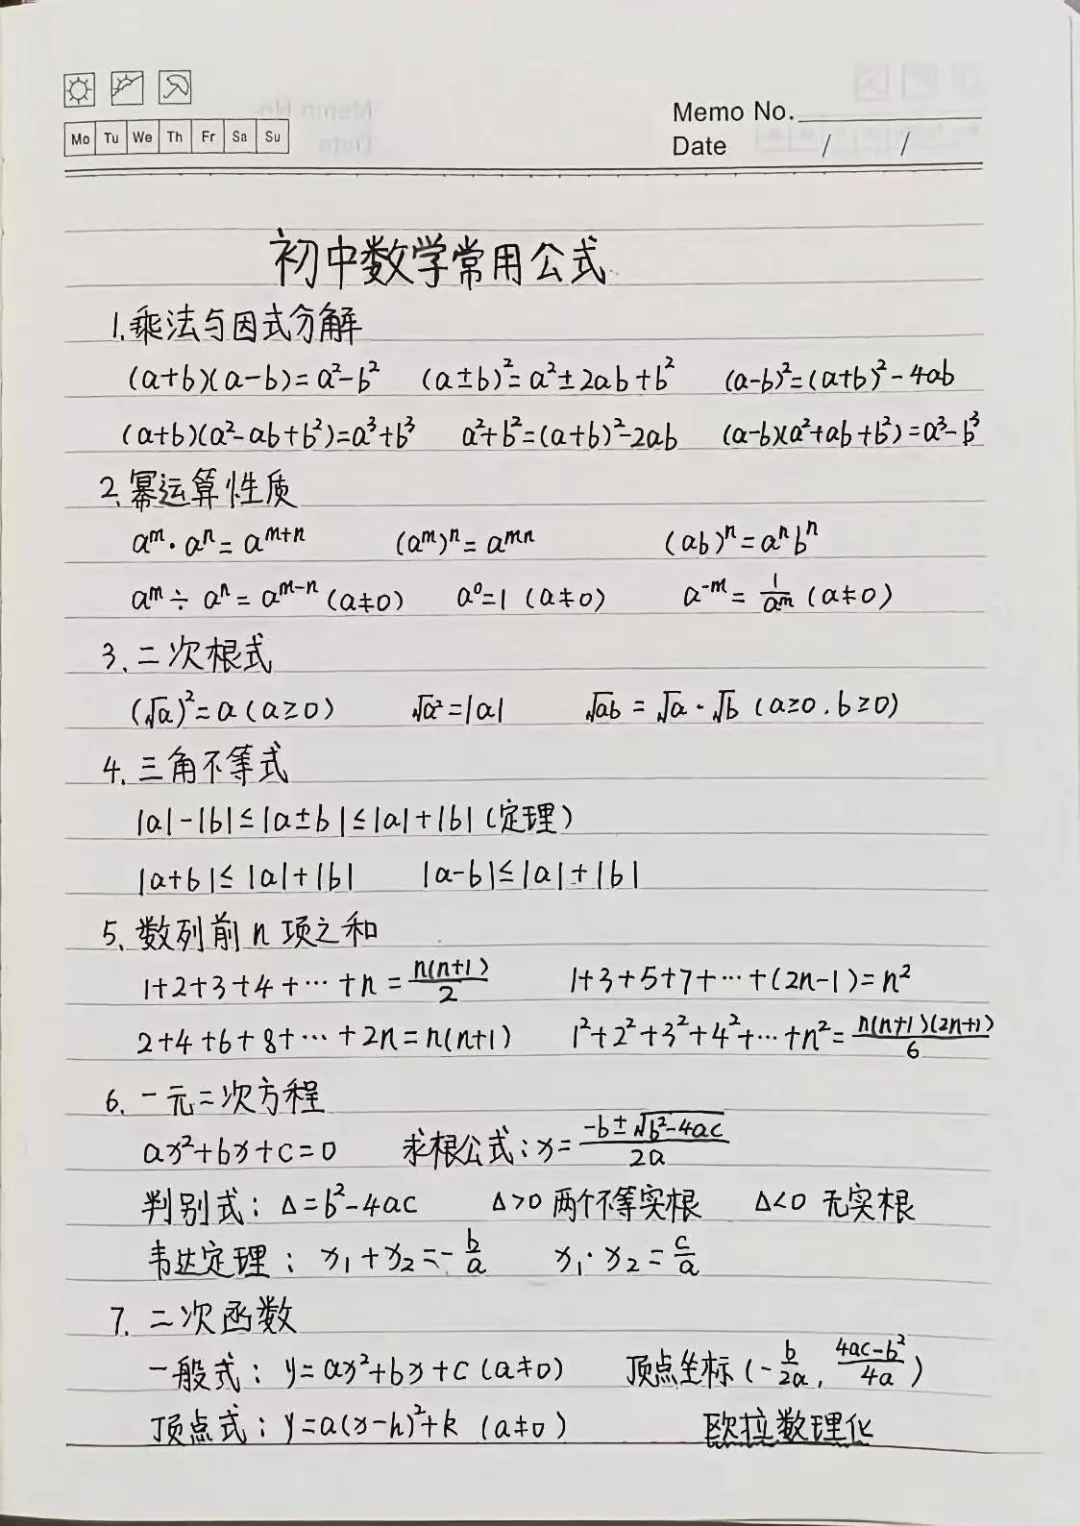 Memo No.
Mo Tu We Th Fr Sa Su
Date / /
初中数学常用公式
1.乘法与因式分解
(a+b)(a-b)=a²-b² (a±b)²=a²±2ab+b² (a-b)²=(a+b)²-4ab
(a+b)(a²-ab+b²)=a³+b³ a²+b²=(a+b)²-2ab (a-b)(a²+ab+b²)=a³-b³
2、幂运算性质
aᵐ·aⁿ=aᵐ⁺ⁿ (aᵐ)ⁿ=aᵐⁿ (ab)ⁿ=aⁿbⁿ
aᵐ÷aⁿ=aᵐ⁻ⁿ(a≠0) a⁰=1 (a≠0) a⁻ᵐ=1/aᵐ (a≠0)
3、二次根式
(√a)²=a(a≥0) √a²=|a| √ab=√a·√b (a≥0.b≥0)
4、三角不等式
|a|-|b|≤|a±b|≤|a|+|b|(定理)
|a+b|≤|a|+|b| |a-b|≤|a|+|b|
5、数列前n项之和
1+2+3+4+…+n=n(n+1)/2 1+3+5+7+…+(2n-1)=n²
2+4+6+8+…+2n=n(n+1) 1²+2²+3²+4²+…+n²=n(n+1)(2n+1)/6
6、一元二次方程
ax²+bx+c=0 求根公式:x=(-b±√b²-4ac)/2a
判别式:Δ=b²-4ac Δ>0 两个不等实根 Δ<0 无实根
韦达定理:x₁+x₂=-b/a x₁·x₂=c/a
7、二次函数
一般式:y=ax²+bx+c(a≠0) 顶点坐标(-b/2a,(4ac-b²)/4a)
顶点式:y=a(x-h)²+k (a≠0) 欧拉数理化